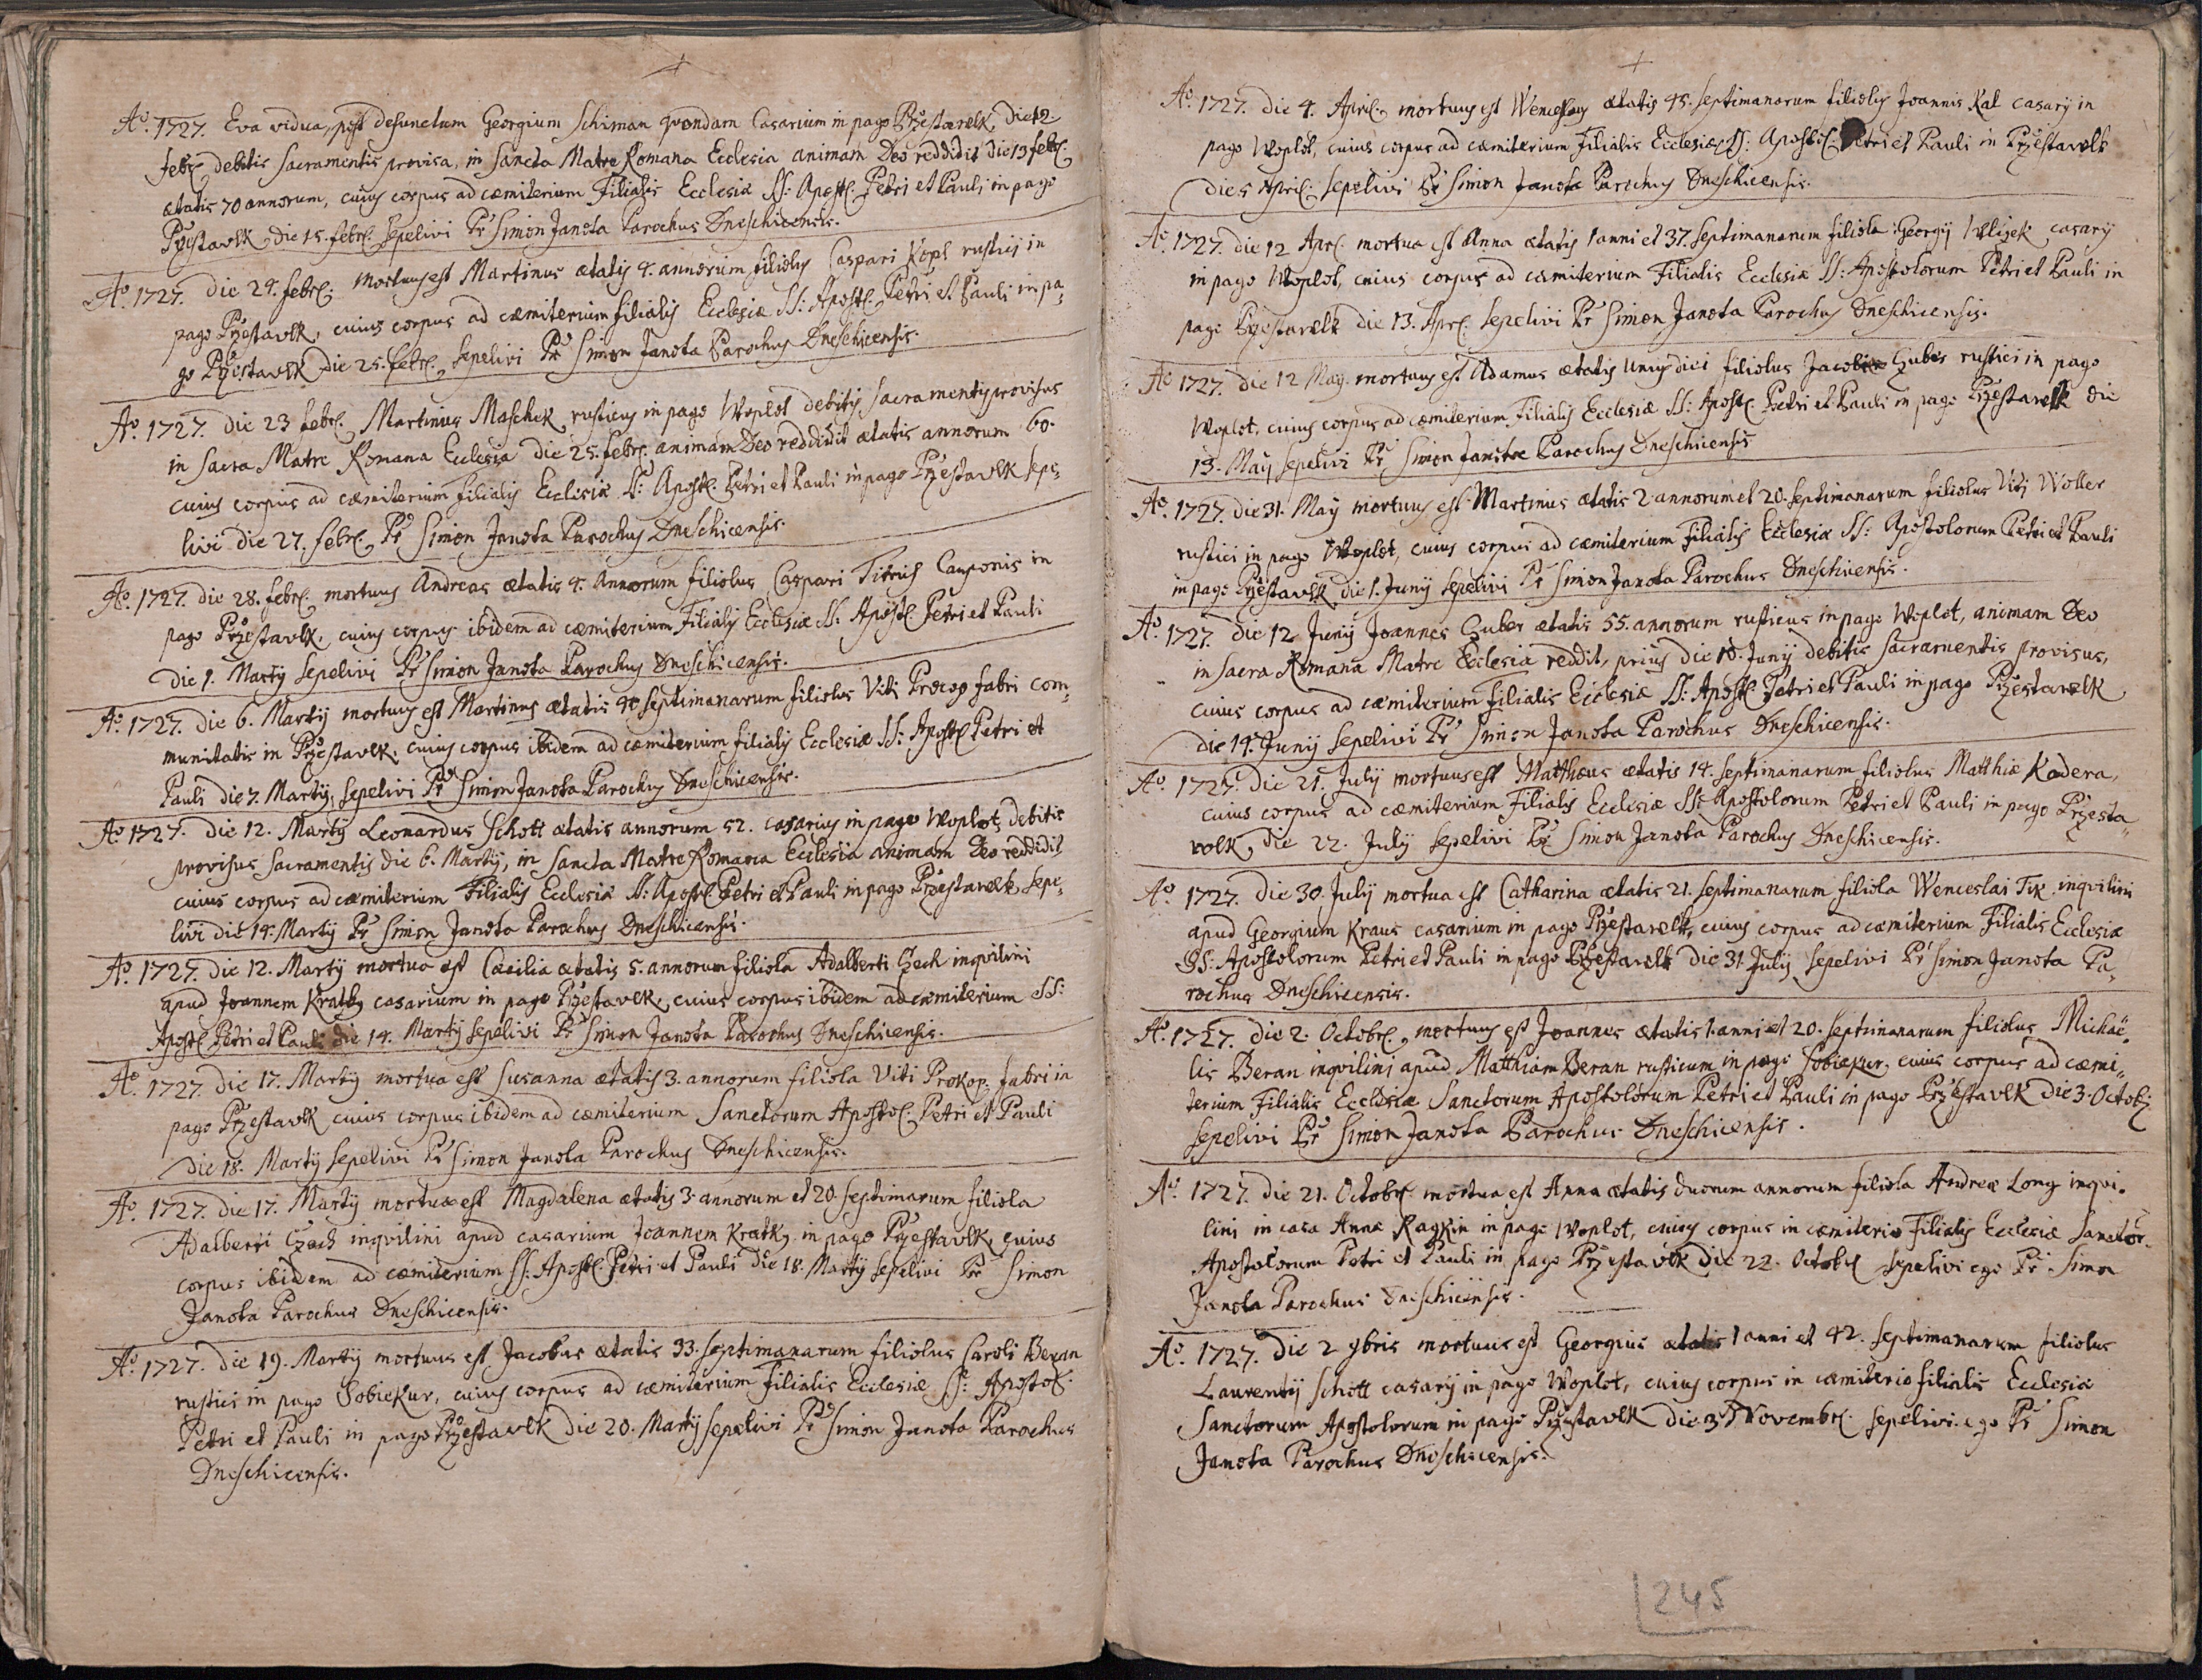 Aõ. 1727. Eva vidua, post defunctum Georgium Schiman quondam Casarium in pago Przestavlk, die 12
febr. debitis sacramentis provisa, in sancta Matre Romana Ecclesia animam Deo reddidit die 13 febr.
ætatis 70 annorum, cuius corpus ad cæmiterium Filialis Ecclesiæ SS: Apost. Petri et Pauli in pago
Przestavlk die 15. febr. sepelivi Pr Simon Janota Parochus Dneschicensis.
Aõ. 1727. die 24. febr. mortuus est Martinus ætatis 4. annorum filiolus Caspari Kopl rustici in
pago Przestavlk, cuius corpus ad cæmiterium filialis Ecclesiæ SS: Apost. Petri et Pauli in pa¸
go Przestavlk die 25. febr. sepelivi Pr Simon Janota Parochus Dneschicensis.
Aõ. 1727. die 23 febr. Martinus Maschek rusticus in pago Woplot debitis sacramentis provisus
in sacra Matre Romana Ecclesia die 25. febr. animam Deo reddidit ætatis annorum 60.
cuius corpus ad cæmiterium filialis Ecclesiæ SS: Apost. Petri et Pauli in pago Przestavlk sepe¸
livi die 27. febr. Pr Simon Janota Parochus Dneschicensis.
Aõ. 1727. die 28. febr. mortuus Andreas ætatis 4. Annorum filiolus Caspari Titrich Cauponis in
pago Przestavlk, cuius corpus ibidem ad cæmiterium Filialis Ecclesiæ SS: Apost. Petri et Pauli
die 1. Martij sepelivi Pr Simon Janota Parochus Dneschicensis.
Aõ. 1727. die 6. Martij mortuus est Martinus ætatis septimanarum filiolus Viti Procop fabri com¸
munitatis in Przestavlk, cuius corpus ibidem ad cæmiterium filialis Ecclesiæ SS: Apost. Petri et
Pauli die 7. Martij, sepelivi Pr Simon Janota Parochus Dneschicensis.
Aõ. 1727. die 12. Martij Leonardus Schott ætatis annorum 52. casarius in pago Woplot, debitis
provisus sacramentis die 6. Martij, in sancta Matre Romana Ecclesia animam Deo reddidit
cuius corpus ad cæmiterium Filialis Ecclesiæ SS: Apost. Petri et Pauli in pago Przestavlk sepe¸
livi die 14. Martij Pr Simon Janota Parochus Dneschicensis.
Aõ. 1727. die 12. Martij mortua est Cæcilia ætatis 5. annorum filiola Adalberti Czech inquilini
apud Joannem Kratky casarium in pago Przestavlk, cuius corpus ibidem ad cæmiterium SS:
Apost. Petri et Pauli die 14. Martij sepelivi Pr Simon Janota Parochus Dneschicensis.
Aõ. 1727. die 17. Martij mortua est Susanna ætatis 3. annorum filiola Viti Prokop. fabri in
pago Przestavlk cuius corpus ibidem ad cæmiterium Sanctorum Apostol. Petri et Pauli
die 18. Martij sepelivi Pr Simon Janota Parochus Dneschicensis.
Aõ. 1727. die 17. Martij mortua est Magdalena ætatis 3. annorum et 20. septimarum filiola
Adalberti Czech inquilini apud casarium Joannem Kratky in pago Przestavlk, cuius
corpus ibidem ad cæmiterium SS: Apost. Petri et Pauli die 18. Martij sepelivi Pr Simon
Janota Parochus Dneschicensis.
Aõ. 1727. die 19. Martij mortuus est Jacobus ætatis 33. septimanarum filiolus Caroli Beran
rustici in pago Sobiekur, cuius corpus ad cæmiterium Filialis Ecclesiæ SS: Apostol.
Petri et Pauli in pago Przestavlk die 20. Martij sepelivi Pr Simon Janota Parochus
Dneschicensis.
Aõ. 1727. die 4. April. mortuus est Wenceslaus ætatis 45. septimanarum filiolus Joannis Kal casarij in
pago Woplot, cuius corpus ad cæmiterium Filialis Ecclesiæ SS: Apostol. Petri et Pauli in Przestavlk
die 5 April. sepelivi Pr Simon Janota Parochus Dneschicensis.
Aõ. 1727. die 12 Apr. mortua est Anna ætatis 1 anni et 37. septimanarum filiola Georgij casarij
in pago Woplot, cuius corpus ad cæmiterium Filialis Ecclesiæ SS: Apostolorum Petri et Pauli in
pago Przestavlk die 13. Apr. sepelivi Pr Simon Janota Parochus Dneschicensis.
Aõ 1727. die 12 Maij. mortuus est Adamus ætatis unius diei filiolus Jacobi Huber rustici in pago
Woplot, cuius corpus ad cæmiterium Filialis Ecclesiæ SS: Apost. Petri et Pauli in pago Przestavlk die
13. Maij sepelivi Pr Simon Janota Parochus Dneschicensis
Aõ. 1727. die 31. Maij mortuus est Martinus ætatis 2 annorum et 20. septimanarum filiolus Viti Woller
rustici in pago Woplot, cuius corpus ad cæmiterium filialis Ecclesiæ SS: Apostolorum Petri et Pauli
in pago Przestavlk die 1. Junij sepelivi Pr Simon Janota Parochus Dneschicensis.
Aõ. 1727. die 12 Junij Joannes Huber ætatis 55. annorum rusticus in pago Woplot, animam Deo
in sacra Romana Matre Ecclesia reddit, prius die 10. Junij debitis sacramentis provisus,
cuius corpus ad cæmiterium filialis Ecclesiæ SS: Apost. Petri et Pauli in pago Przestavlk
die 14. Junij sepelivi Pr Simon Janota Parochus Dneschicensis.
Aõ. 1727. die 21. Julij mortuus est Matthæus ætatis 14. septimanarum filiolus Matthiæ Kadera,
cuius corpus ad cæmiterium Filialis Ecclesiæ SS: Apostolorum Petri et Pauli in pago Przesta¸
volk die 22. Julij sepelivi Pr Simon Janota Parochus Dneschicensis.
Aõ. 1727. die 30. Julij mortua est Catharina ætatis 21. septimanarum filiola Wenceslai Tix inquilini
apud Georgium Kraus casarium in pago Przestavlk, cuius corpus ad cæmiterium Filialis Ecclesiæ
SS: Apostolorum Petri et Pauli in pago Przestavlk die 31. Julij sepelivi Pr Simon Janota Pa¸
rochus Dneschicensis.
Aõ. 1727. die 2. Octobr. mortuus est Joannes ætatis 1. anni et 20. septimanarum filiolus Michaë¸
lis Beran inquilini apud Matthiam Beran rusticum in pago Sobiekur, cuius corpus ad cæmi¸
terium Filialis Ecclesiæ Sanctorum Apostolorum Petri et Pauli in pago Przestavlk die 3. Octob.
sepelivi Pr Simon Janota Parochus Dneschicensis.
Aõ. 1727. die 21. Octobr. mortua est Anna ætatis duorum annorum filiola Andreæ Long inqui.
lini in casa Annæ in pago Woplot, cuius corpus in cæmiterio Filialis Ecclesiæ Sanctor.
Apostolorum Petri et Pauli in pago Przestavlk die 22. Octobr. sepelivi ego Pr Simon
Janota Parochus Dneschicensis.
Aõ. 1727. die 2 9bris mortuus est Georgius ætatis 1 anni et 42. septimanarum filiolus
Laurentij Schott casarij in pago Woplot, cuius corpus in cæmiterio filialis Ecclesiæ
Sanctorum Apostolorum in pago Przestavlk die 3 Novembr. sepelivi ego Pr Simon
Janota Parochus Dneschicensis.
245